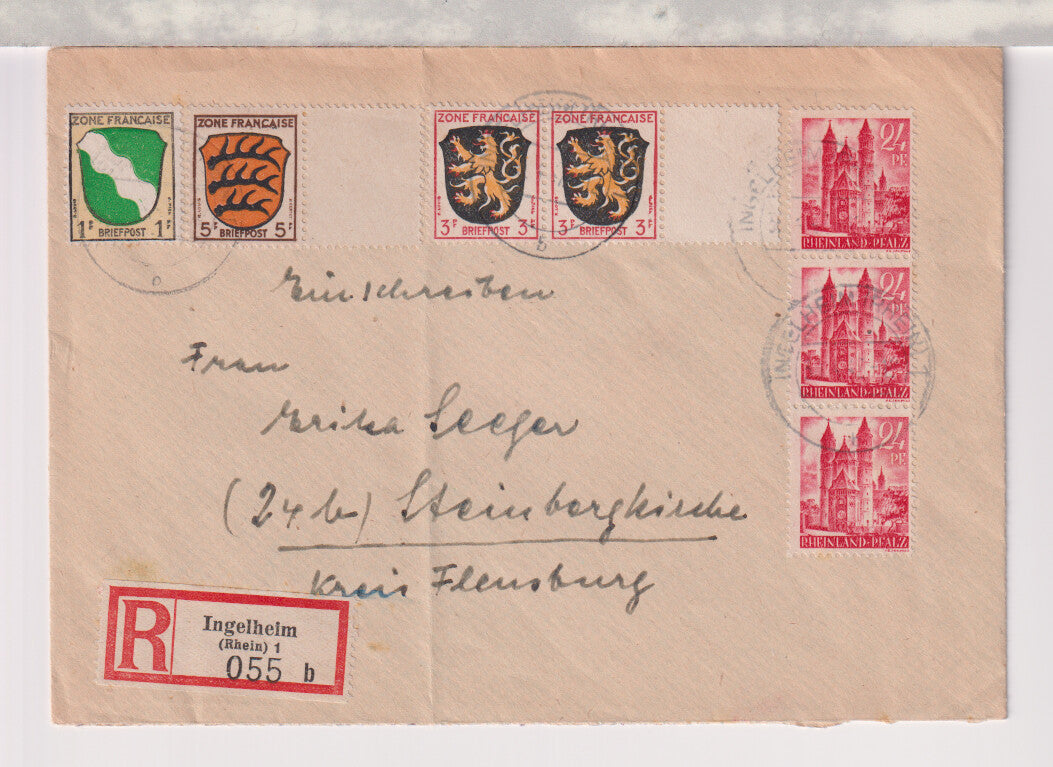 ZONE FRANÇAISE
1F BRIEFPOST 1F
ZONE FRANÇAISE
5F BRIEFPOST 5F
ZONE FRANÇAISE
3F BRIEFPOST 3F
ZONE FRANÇAISE
3F BRIEFPOST 3F
24
PF.
RHEINLAND-PFALZ
24
PF.
RHEINLAND-PFALZ
24
PF.
RHEINLAND-PFALZ
INGELHEIM (RHEIN) 1
b
Einschreiben
Frau
Erika Seeger
(24b) Steinbergkirche
Kreis Flensburg
R
Ingelheim
(Rhein) 1
055 b